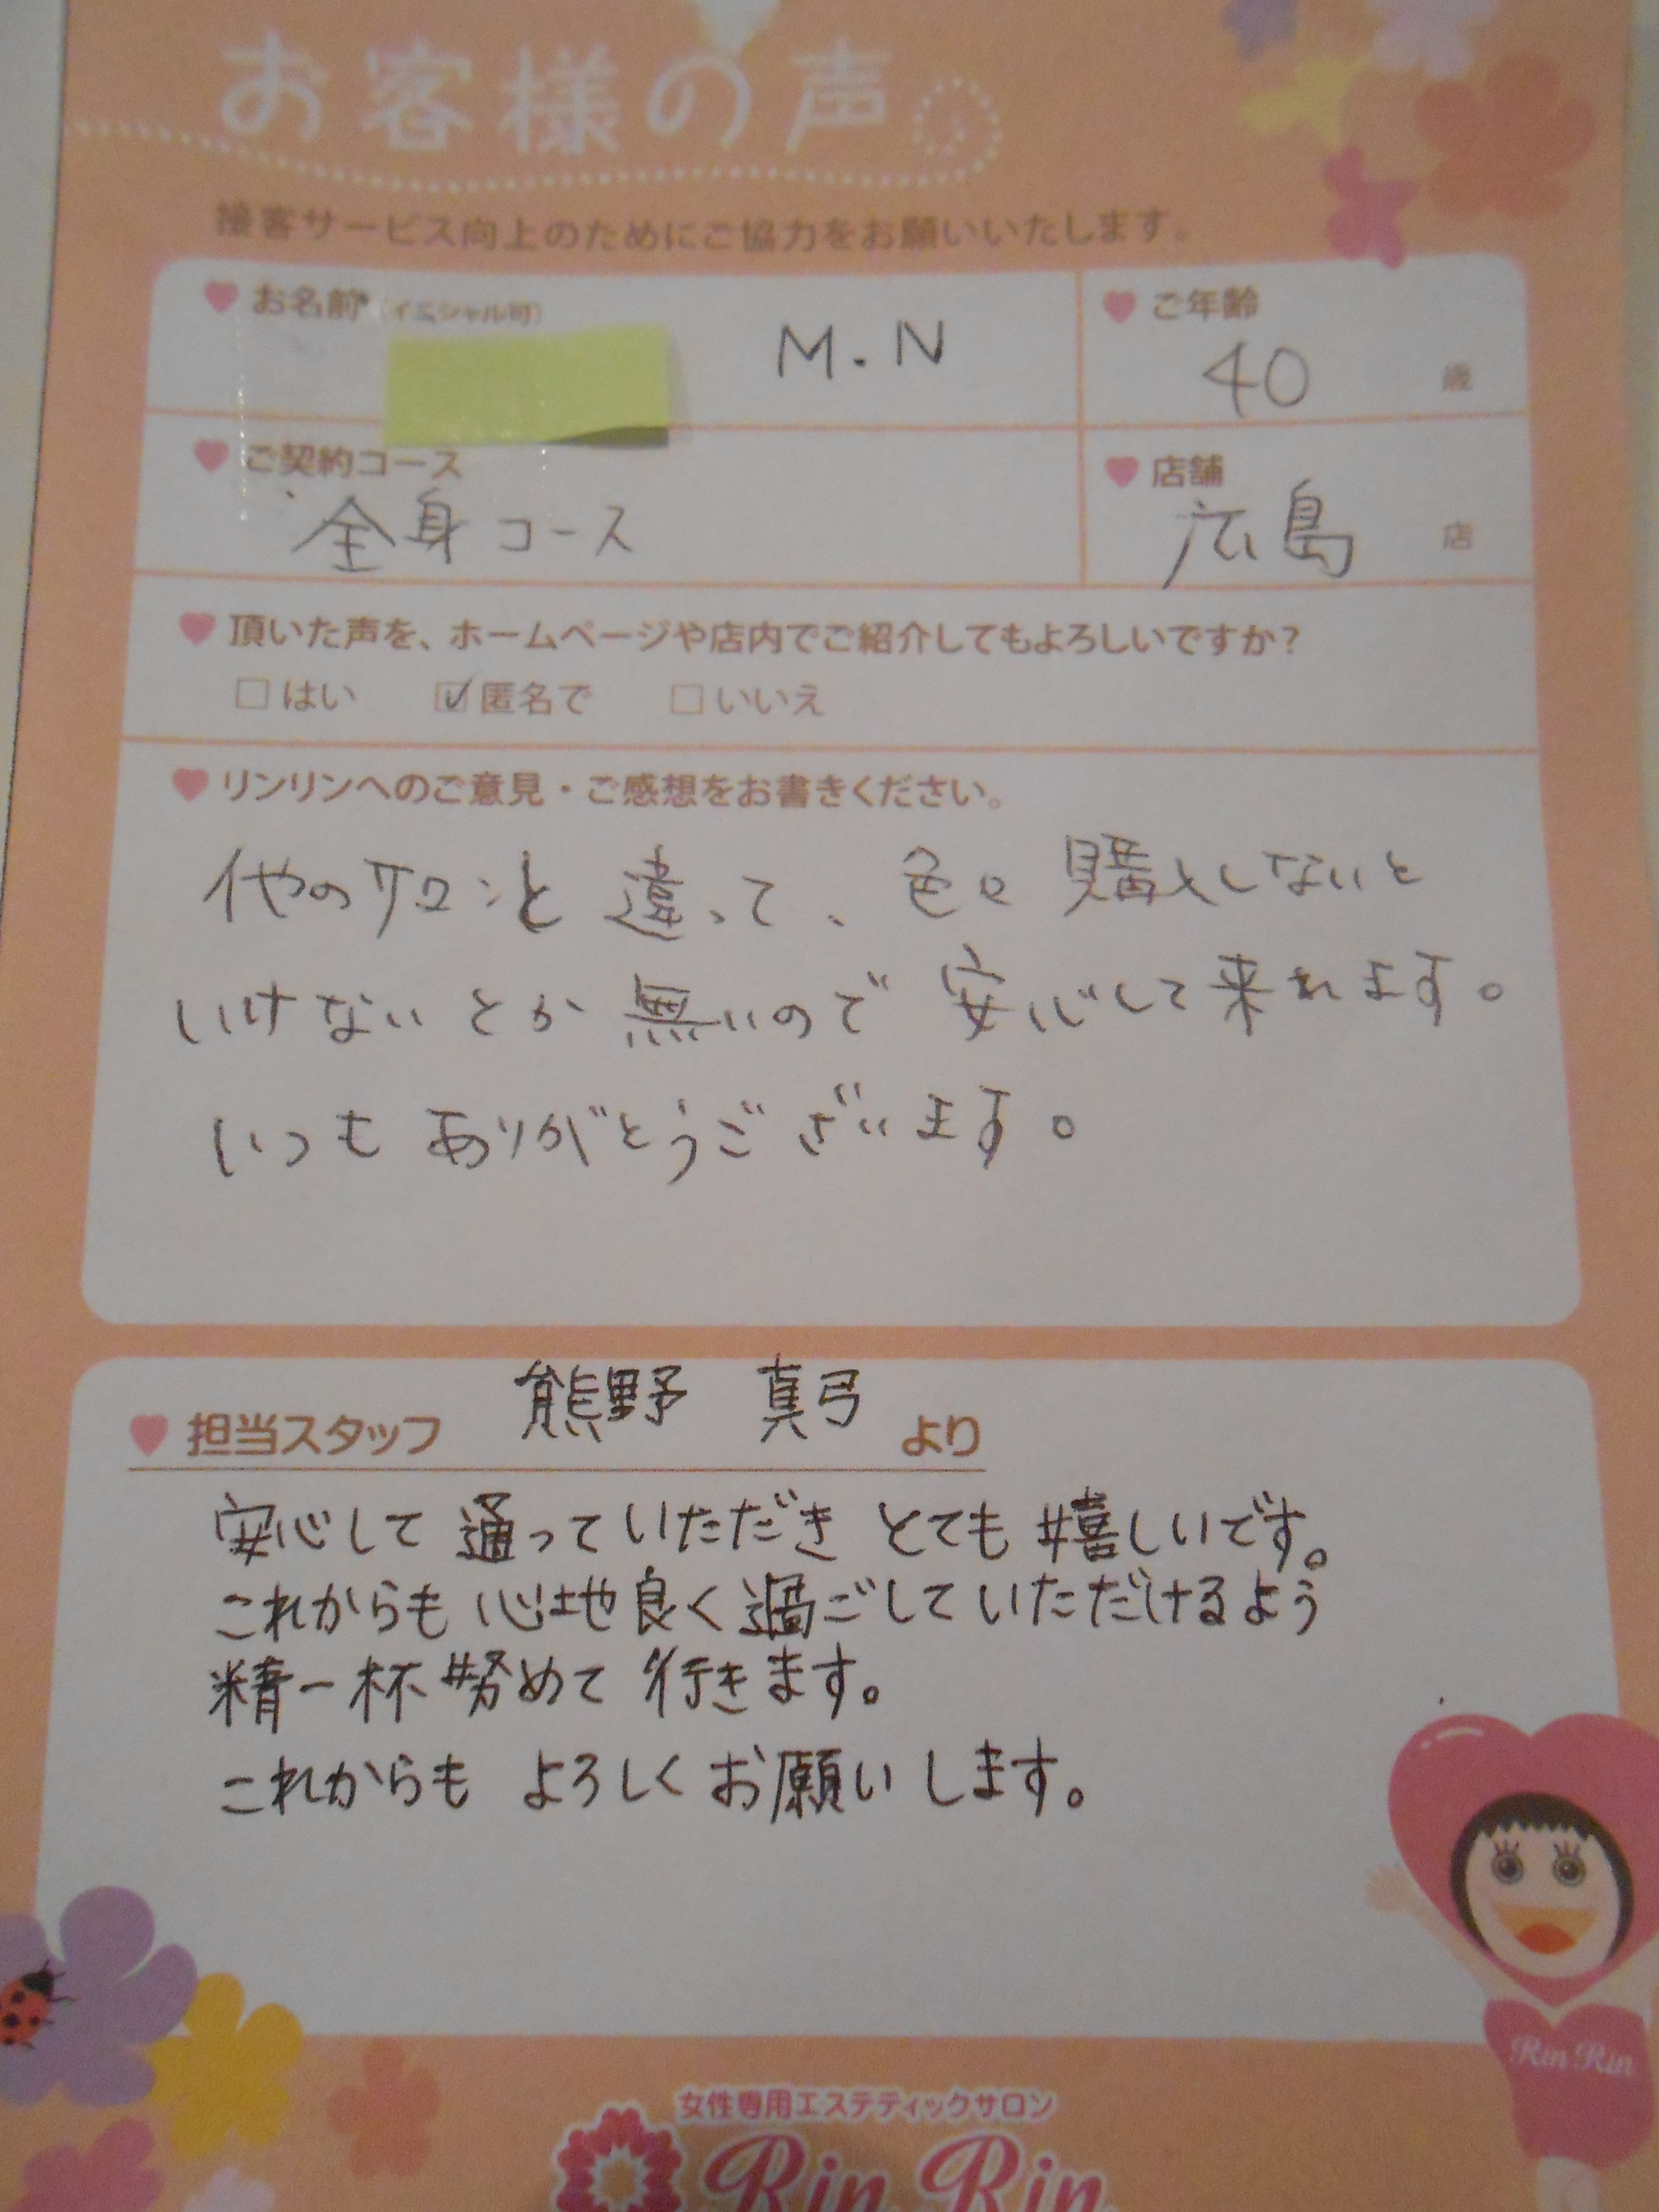 お客様の声
接客サービス向上のためにご協力をお願いいたします。
お名前（イニシャル可）
M.N
ご年齢
40 歳
ご契約コース
全身コース
店舗
広島 店
頂いた声を、ホームページや店内でご紹介してもよろしいですか？
□はい ☑匿名で □いいえ
リンリンへのご意見・ご感想をお書きください。
他のサロンと違って、色々購入しないと
いけないとか無いので安心して来れます。
いつもありがとうございます。
担当スタッフ 熊野 真弓 より
安心して通っていただきとても嬉しいです。
これからも心地良く過ごしていただけるよう
精一杯努めて行きます。
これからもよろしくお願いします。
Rin Rin
女性専用エステティックサロン
Rin Rin